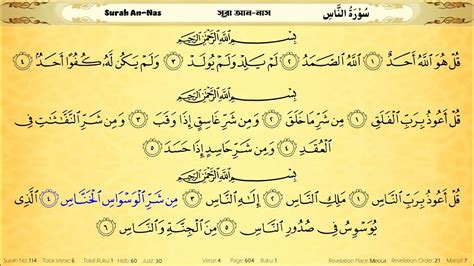 Surah An-Nas সূরা আন-নাস سُورَةُ النَّاسِ
بِسْمِ اللَّهِ الرَّحْمَٰنِ الرَّحِيمِ
قُلْ هُوَ اللَّهُ أَحَدٌ ١ اللَّهُ الصَّمَدُ ٢ لَمْ يَلِدْ وَلَمْ يُولَدْ ٣ وَلَمْ يَكُن لَّهُ كُفُوًا أَحَدٌ ٤
بِسْمِ اللَّهِ الرَّحْمَٰنِ الرَّحِيمِ
قُلْ أَعُوذُ بِرَبِّ الْفَلَقِ ١ مِن شَرِّ مَا خَلَقَ ٢ وَمِن شَرِّ غَاسِقٍ إِذَا وَقَبَ ٣ وَمِن شَرِّ النَّفَّاثَاتِ فِي
الْعُقَدِ ٤ وَمِن شَرِّ حَاسِدٍ إِذَا حَسَدَ ٥
بِسْمِ اللَّهِ الرَّحْمَٰنِ الرَّحِيمِ
قُلْ أَعُوذُ بِرَبِّ النَّاسِ ١ مَلِكِ النَّاسِ ٢ إِلَٰهِ النَّاسِ ٣ مِن شَرِّ الْوَسْوَاسِ الْخَنَّاسِ ٤ الَّذِي
يُوَسْوِسُ فِي صُدُورِ النَّاسِ ٥ مِنَ الْجِنَّةِ وَالنَّاسِ ٦
Surah No: 114 Total Verse: 6 Total Ruku: 1 Hizb: 60 Juzz: 30 Verse: 4 Page: 604 Ruku: 1 Revelation Place: Mecca Revelation Order: 21 Manzil: 7